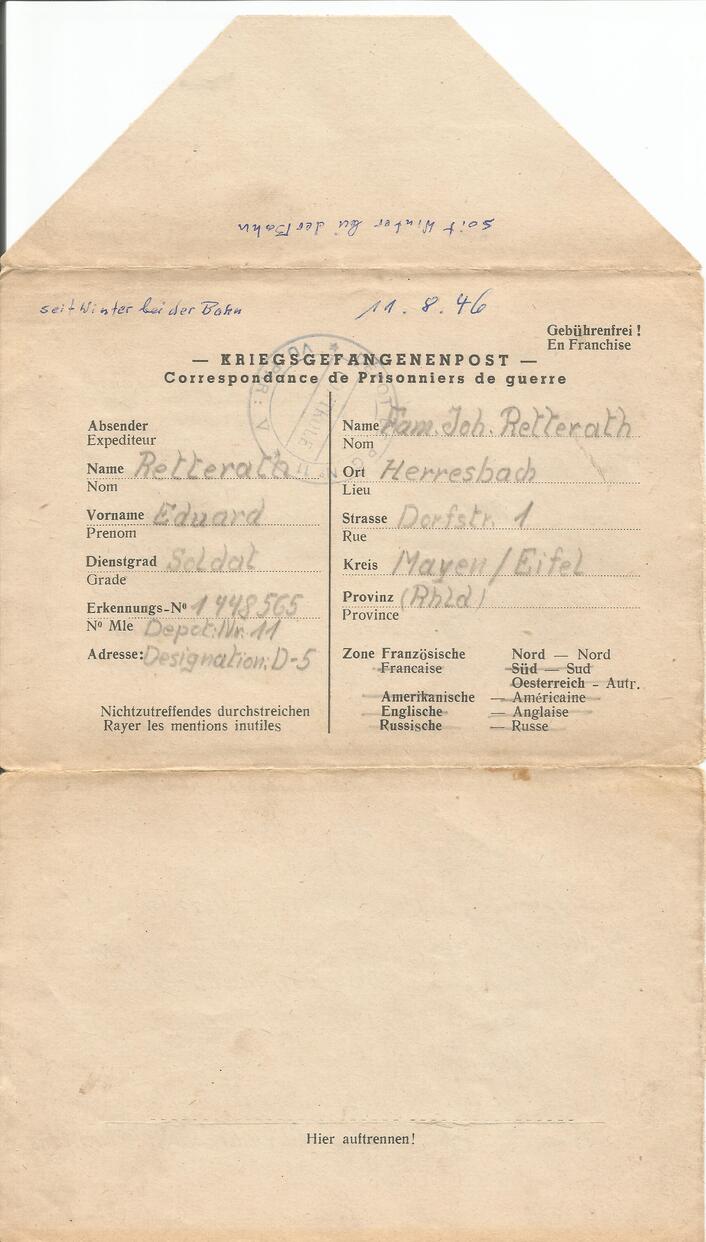 seit Winter bei der Bahn
seit Winter bei der Bahn
11.8.46
Gebührenfrei !
En Franchise
— KRIEGSGEFANGENENPOST —
Correspondance de Prisonniers de guerre
Absender
Expediteur
Name Retterath
Nom
Vorname Eduard
Prenom
Dienstgrad Soldat
Grade
Erkennungs-Nº 1448565
Nº Mle Depot:Nr. 11
Adresse: Designation: D-5
Nichtzutreffendes durchstreichen
Rayer les mentions inutiles
Name Fam. Joh. Retterath
Nom
Ort Herresbach
Lieu
Strasse Dorfstr. 1
Rue
Kreis Mayen/Eifel
Provinz (Rhld)
Province
Zone Französische Nord — Nord
Francaise Süd — Sud
Oesterreich - Autr.
Amerikanische — Américaine
Englische — Anglaise
Russische — Russe
Hier auftrennen!